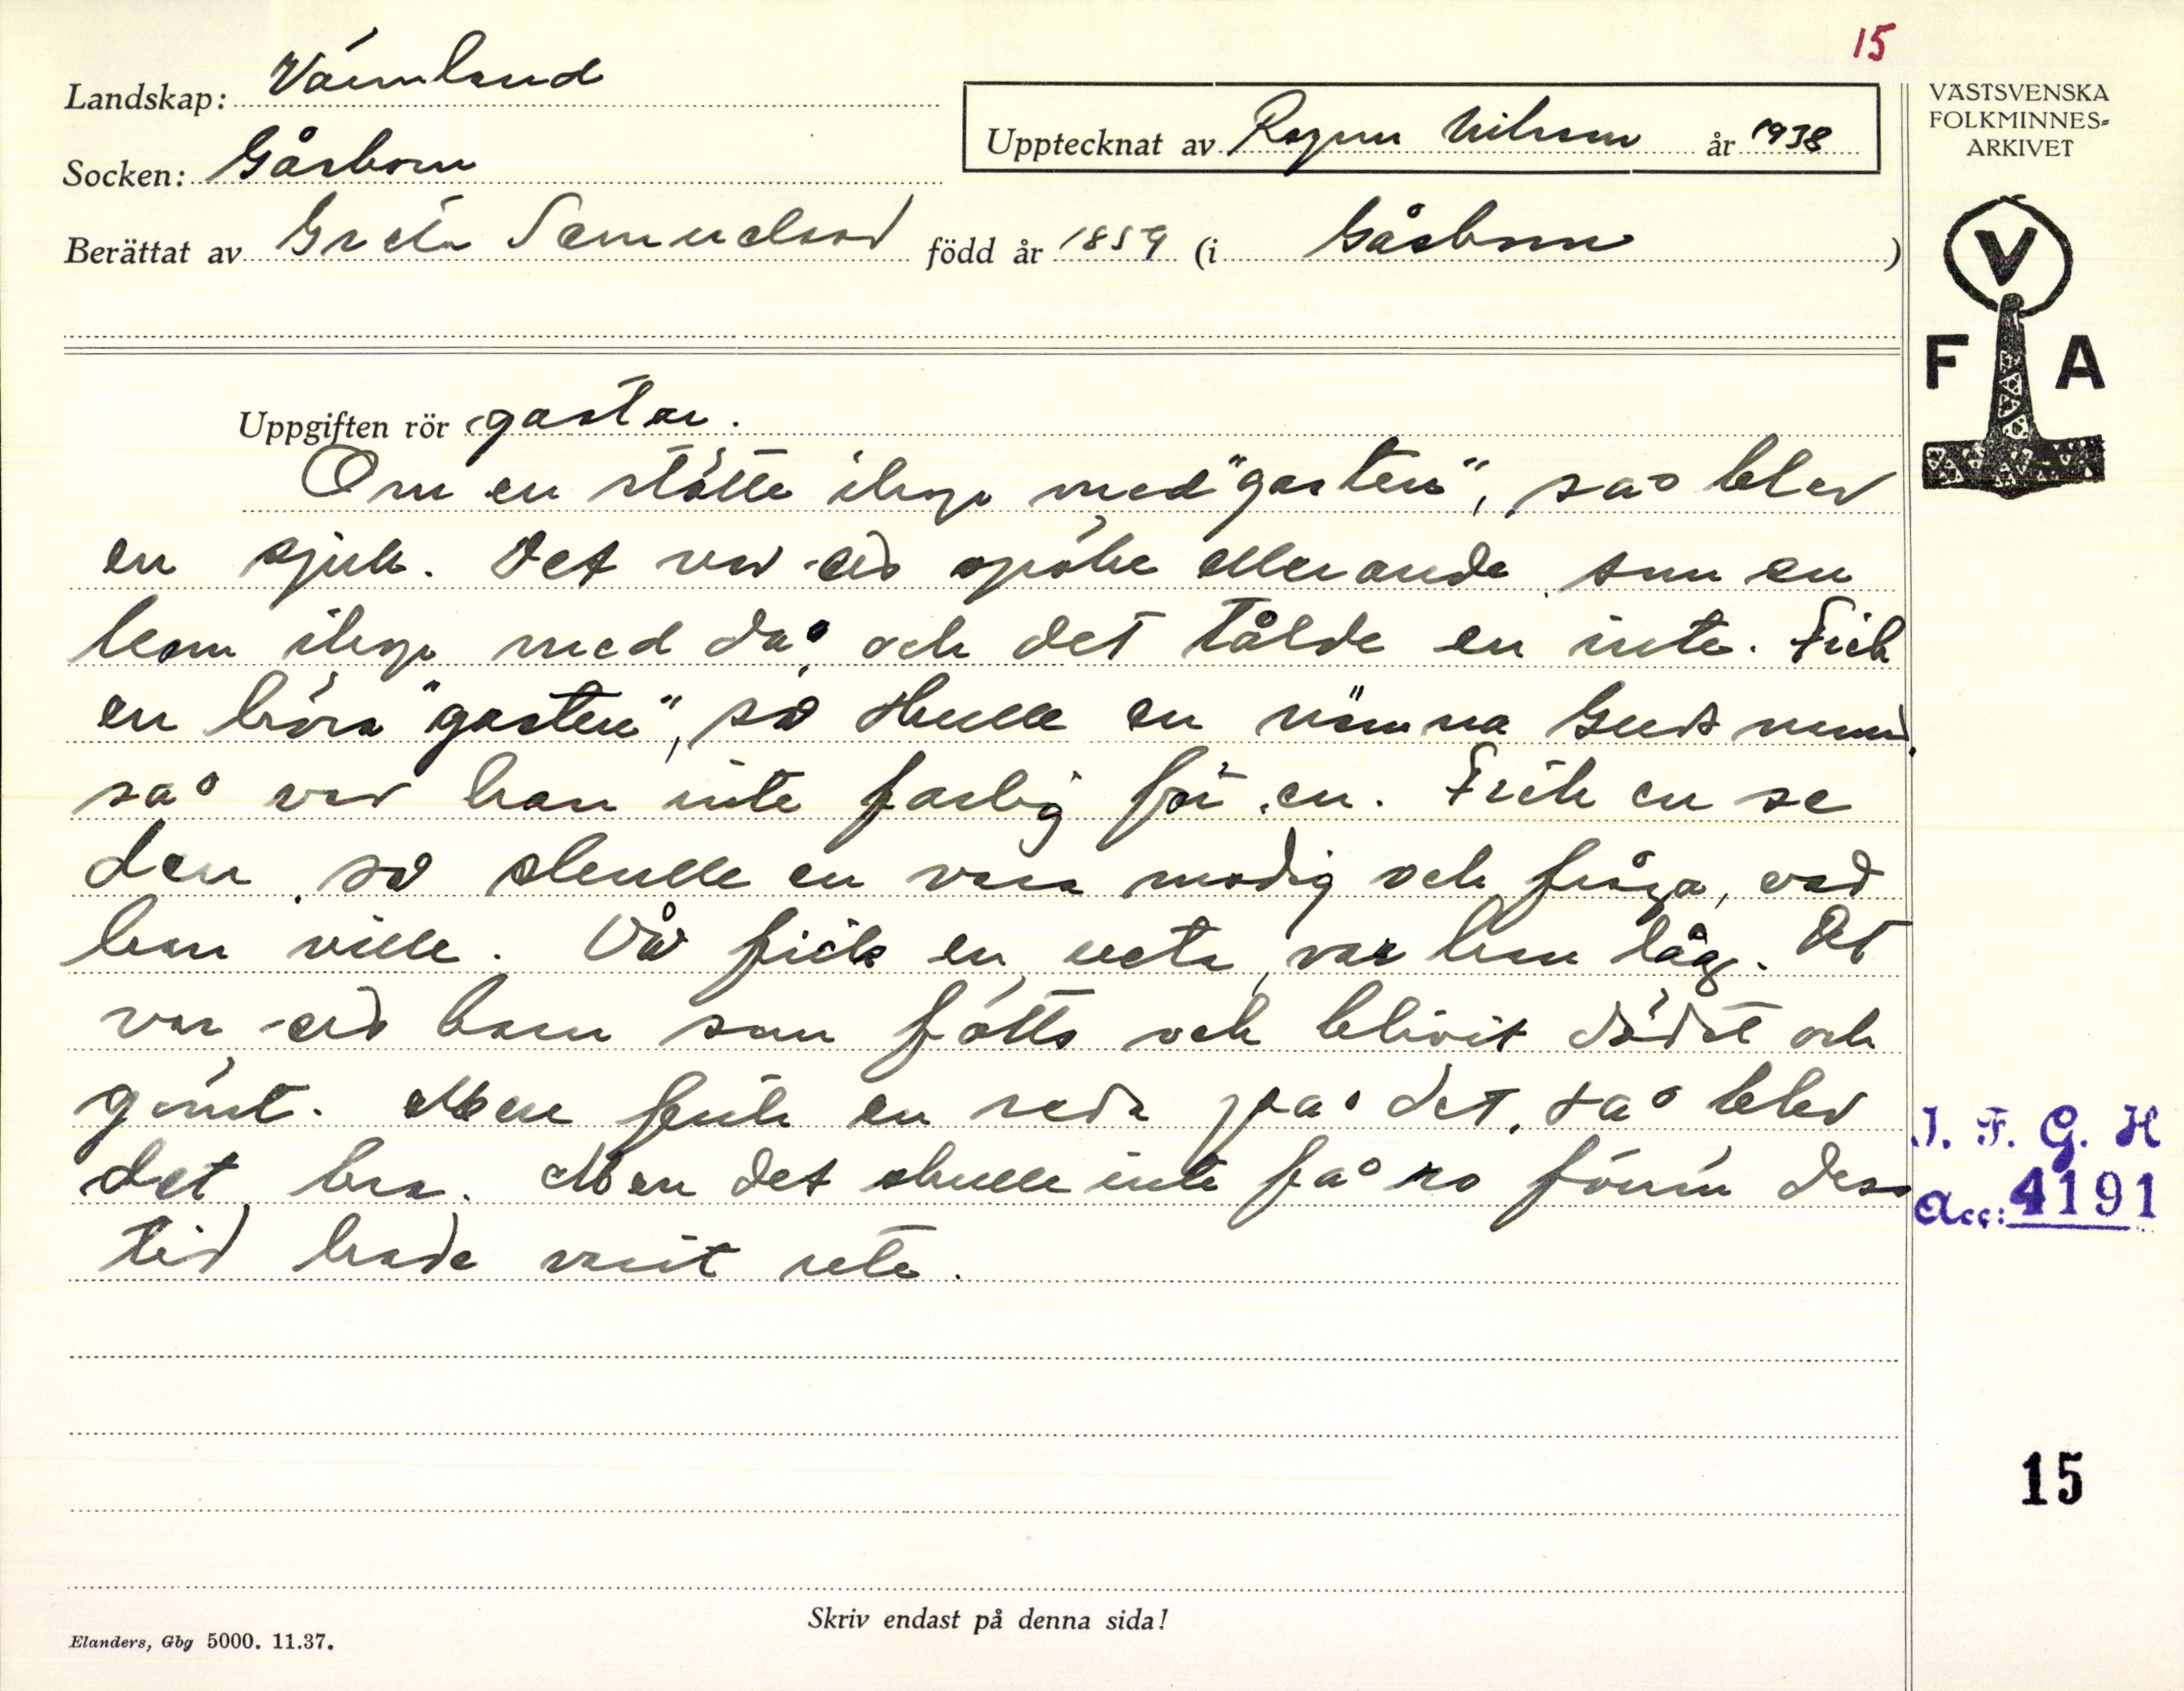 15
Landskap: Värmland
Upptecknat av Ragnar Nilsson år 1938
Socken: Gåsborn
Berättat av Greta Samuelsson född år 1859 (i Gåsborn)
VÄSTSVENSKA
FOLKMINNES-
ARKIVET
V
F A
Uppgiften rör gastar.
Om en stötte ihop med "gasten", så blev
en sjuk. Det var ett spöke eller ande som en
kom ihop med då och det tålde en inte. Fick
en höra "gasten", så skulle en nämna Guds namn,
så var han inte farlig för en. Fick en se
den, så skulle en vara modig och fråga, vad
han ville. Då fick en veta var han låg. Det
var ett barn som fötts och blivit dödat och
gömt. Men fick en reda på det, så blev
det bra. Men det skulle inte få ro förrän dess
tid hade varit ute.
I. F. G. H
Acc: 4191
15
Skriv endast på denna sida!
Elanders, Gbg 5000. 11.37.